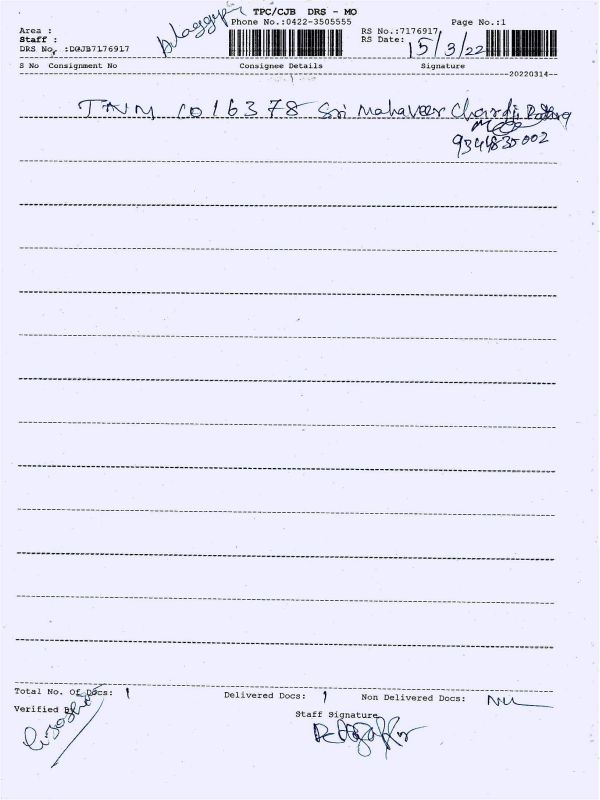 TPC/CJB DRS - MO
Alaggppn
Phone No.:0422-3505555
Page No.:1
Area :
RS No.:7176917
Staff :
RS Date: 15/3/22
DRS No. :D@JB7176917
S No Consignment No Consignee Details Signature
20220314
TNM 1016378 Sri Mahaveer
9344835002
Total No. Of Docs: 1 Delivered Docs: 1 Non Delivered Docs: NIL
Verified By
Staff Signature